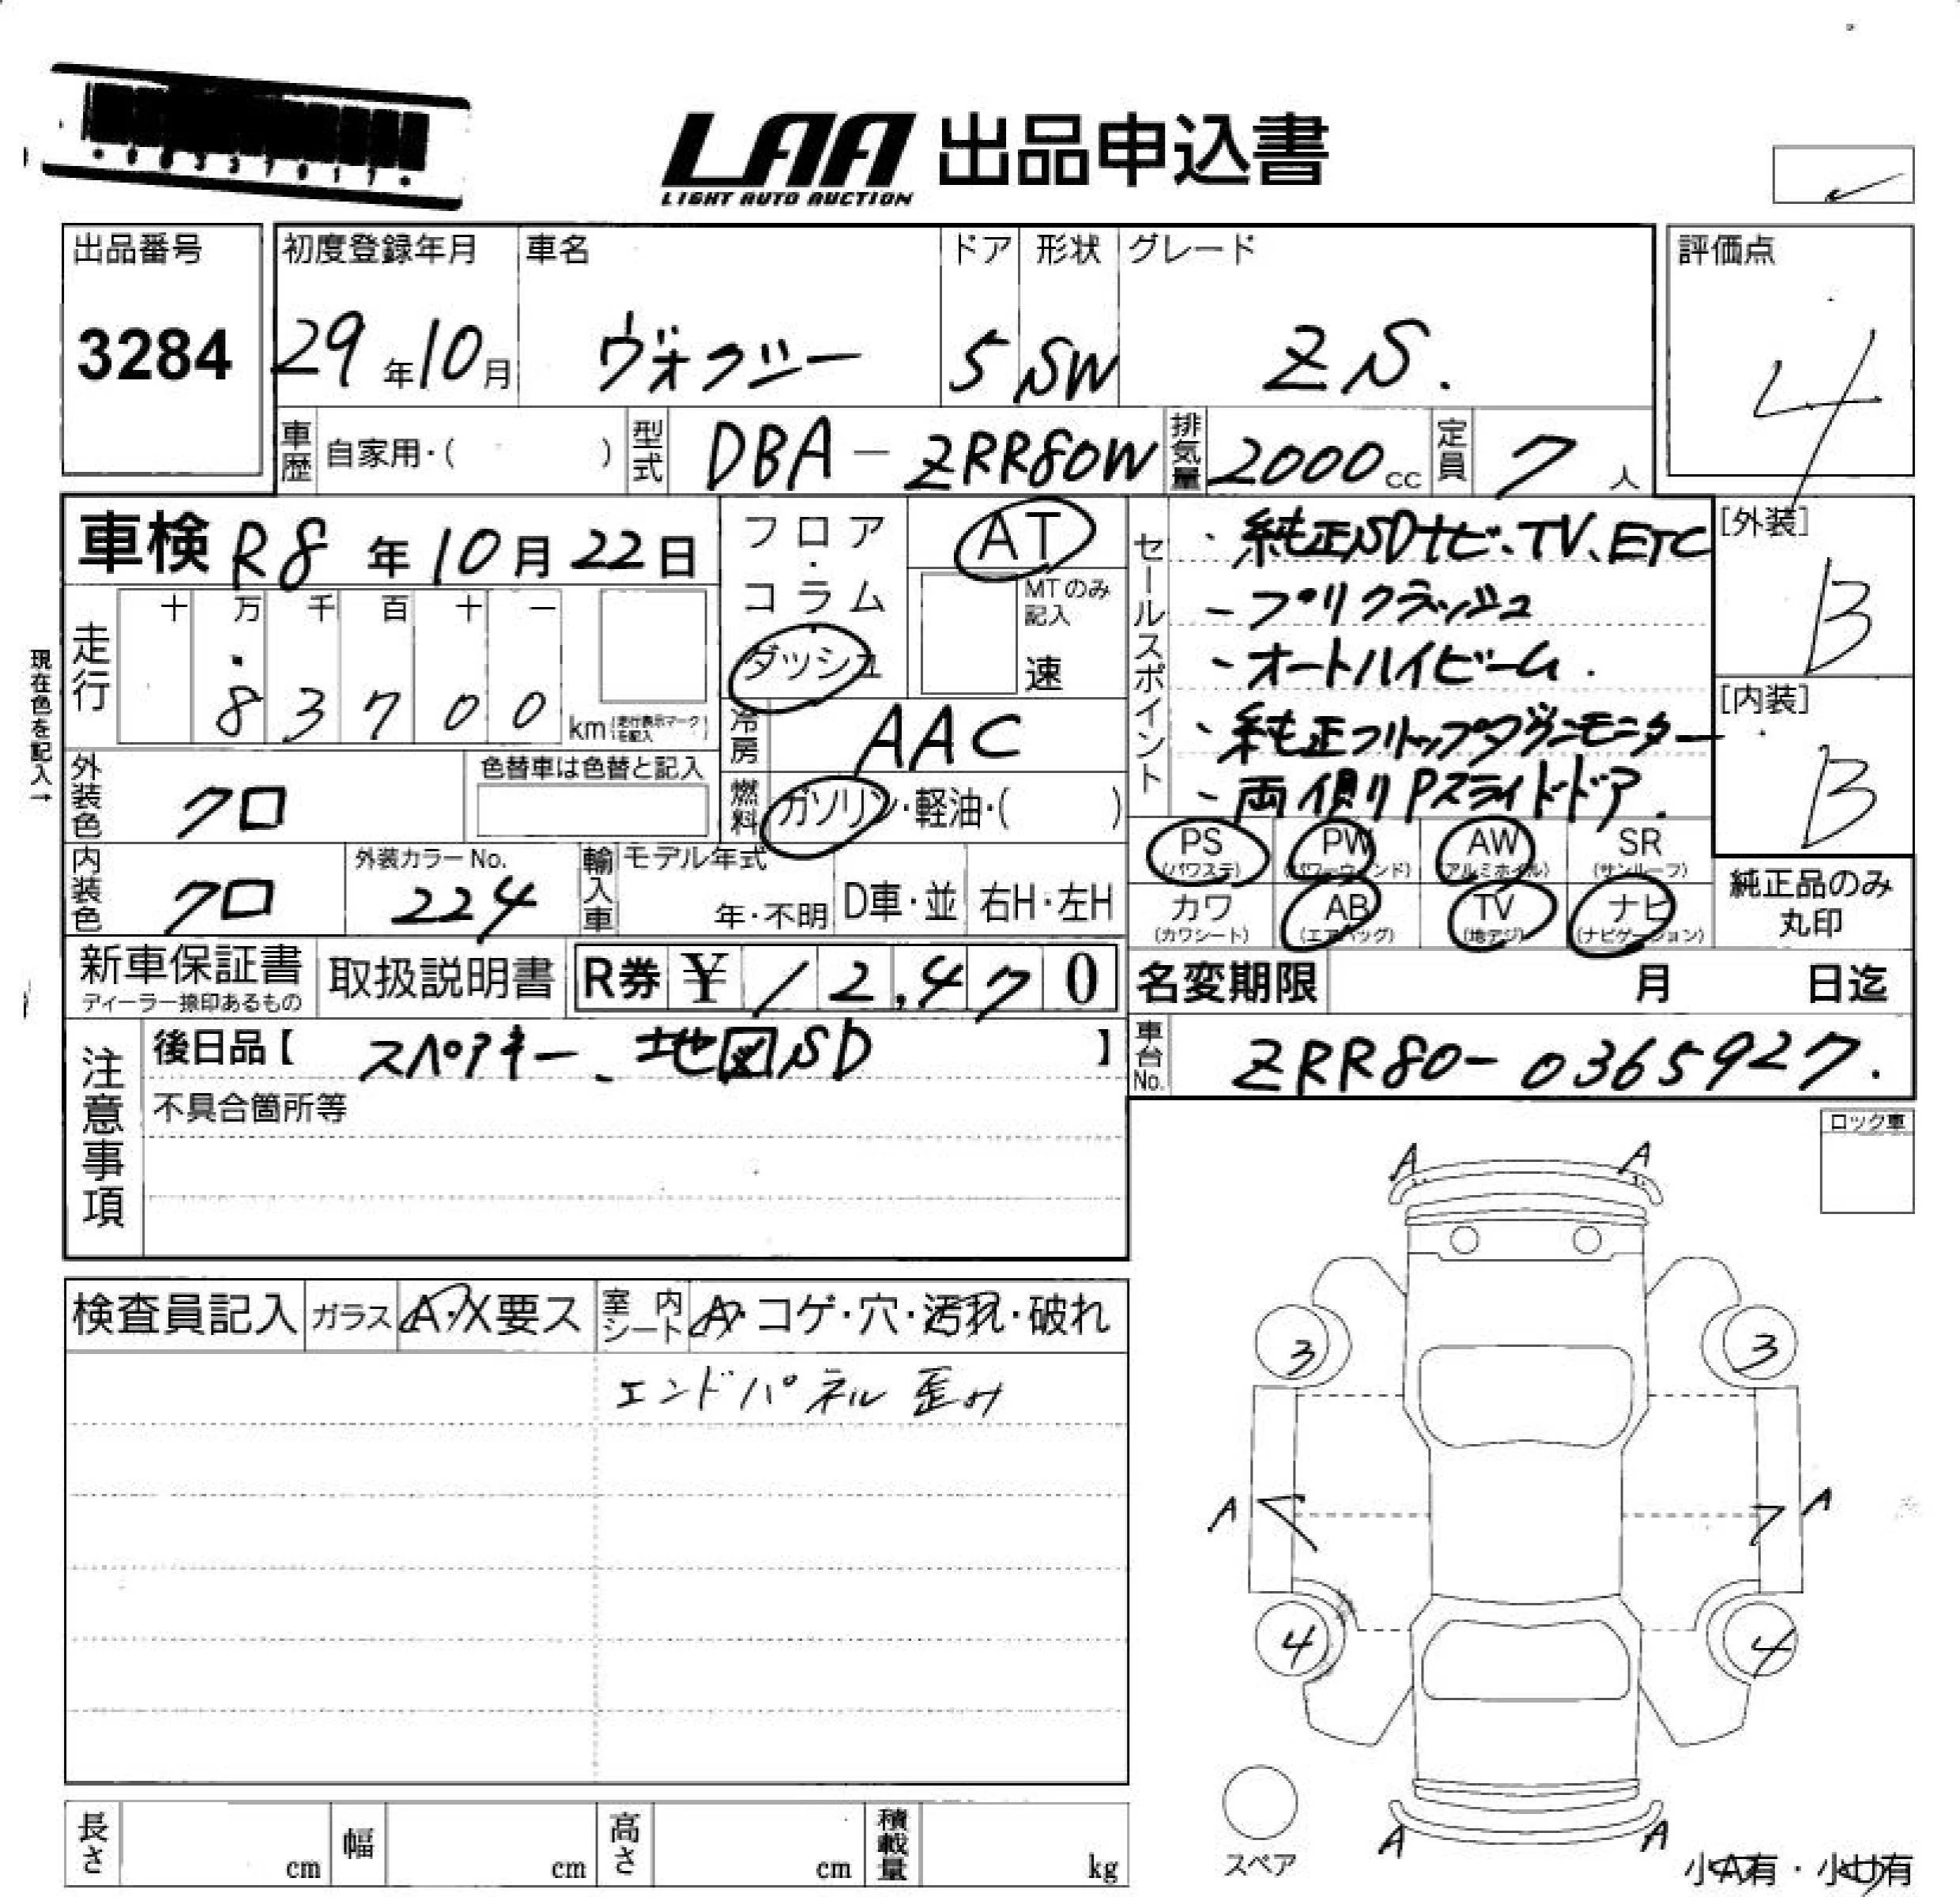 LAA 出品申込書
LIGHT AUTO AUCTION
出品番号 初度登録年月 車名 ドア 形状 グレード 評価点
3284 29年10月 ヴォクシー 5 SW ZS. 4
車歴 自家用・( ) 型式 DBA-ZRR80W 排気量 2000cc 定員 7人
車検 R8年10月22日
フロア・コラム
ダッシュ
AT
MTのみ記入
速
セールスポイント
・純正SDナビ、TV、ETC
-プリクラッシュ
・オートハイビーム.
・純正フリップダウンモニター
-両側Pスライドドア.
[外装]
B
[内装]
B
現在色を記入→
走行 十 万 千 百 十 一
83700 km (走行表示マークを記入)
冷房 AAC
外装色 クロ 色替車は色替と記入
燃料 ガソリン・軽油・( )
PS (パワステ) PW (パワーウィンド) AW (アルミホイル) SR (サンルーフ)
カワ (カワシート) AB (エアバッグ) TV (地デジ) ナビ (ナビゲーション)
純正品のみ
丸印
内装色 クロ 外装カラーNo. 224 輸入車 モデル年式 年・不明 D車・並 右H・左H
新車保証書 ディーラー捺印あるもの 取扱説明書 R券 ¥ 12,470
名変期限 月 日迄
車台No. ZRR80-0365927.
注意事項
後日品【 スペアキー、地図SD 】
不具合箇所等
ロック車
検査員記入 ガラス A・X要ス 室内シート A・コゲ・穴・汚れ・破れ
エンドパネル歪み
A A
3 3
A A
4 4
A A
スペア
小A有・小U有
長さ cm 幅 cm 高さ cm 積載量 kg